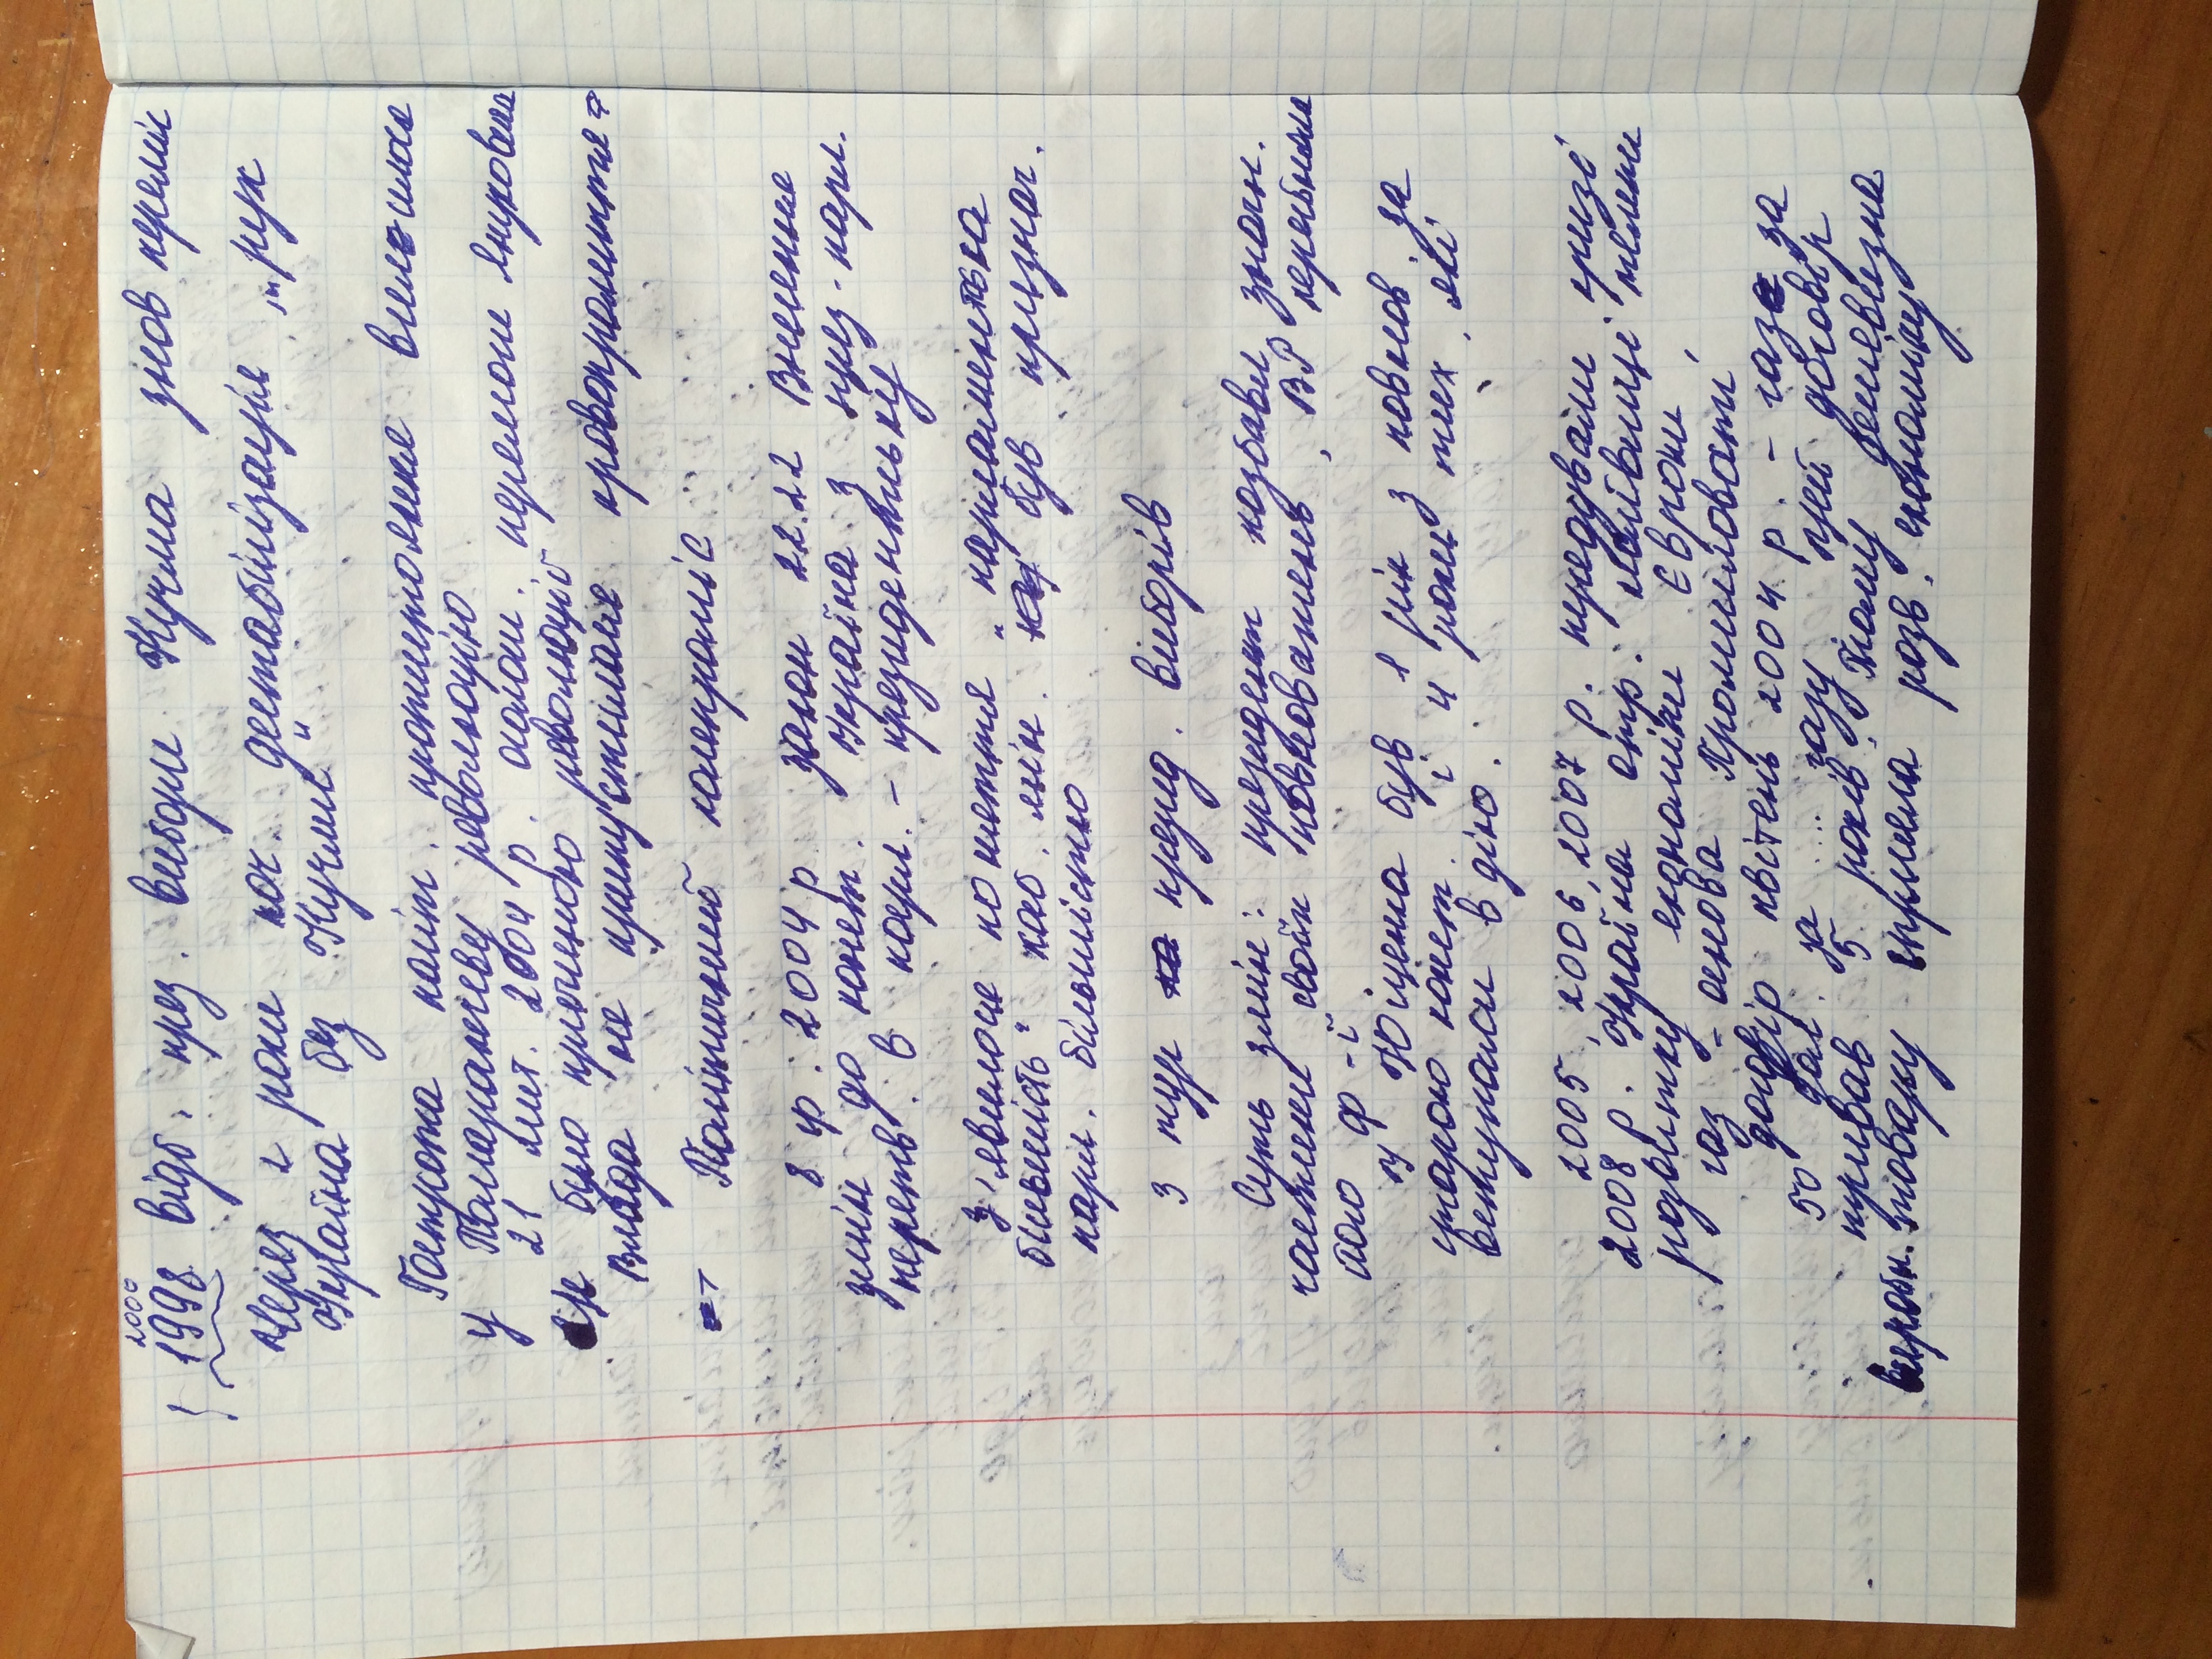 2000
1998 відб. през. вибори Кучма знов переміг
Через 2 роки поч. дестабілізація „рух
Україна без Кучми"
Гострота політ. протистояння вилилась
у Помаранчеву революцію
21 лист. 2004 р. оголош. перемоги Януковича
Це було причиною революції
Влада не припустилася кровопролиття =
=> Політичний компроміс
8 гр. 2004 р. закон 22.22 Внесення
змін до конст. Україна з през-парл.
перетв. в парл. - президентську
З'явилося поняття „парламентська
більшість" каб. мін. був признач.
парл. більшістю
3 тур презид. виборів
Суть змін: президент позбавл. значн.
частини своїх повноважень, ВР перейняла
його ф-ї
У Ющенка був 1 рік з повнов. за
старою конст. і 4 роки тих, які
вступали в дію.
2005, 2006, 2007 р. передували кризі
2008 р. Україна отр. найвищі темпи
розвитку економіки Європи,
газ - основа Промисловості
договір квітень 2004 р. - газ за
50 дол. за ... газу. Цей договір
тривав 5 років. Тому дешевизна
виробн. товару сприяла розв. економіку